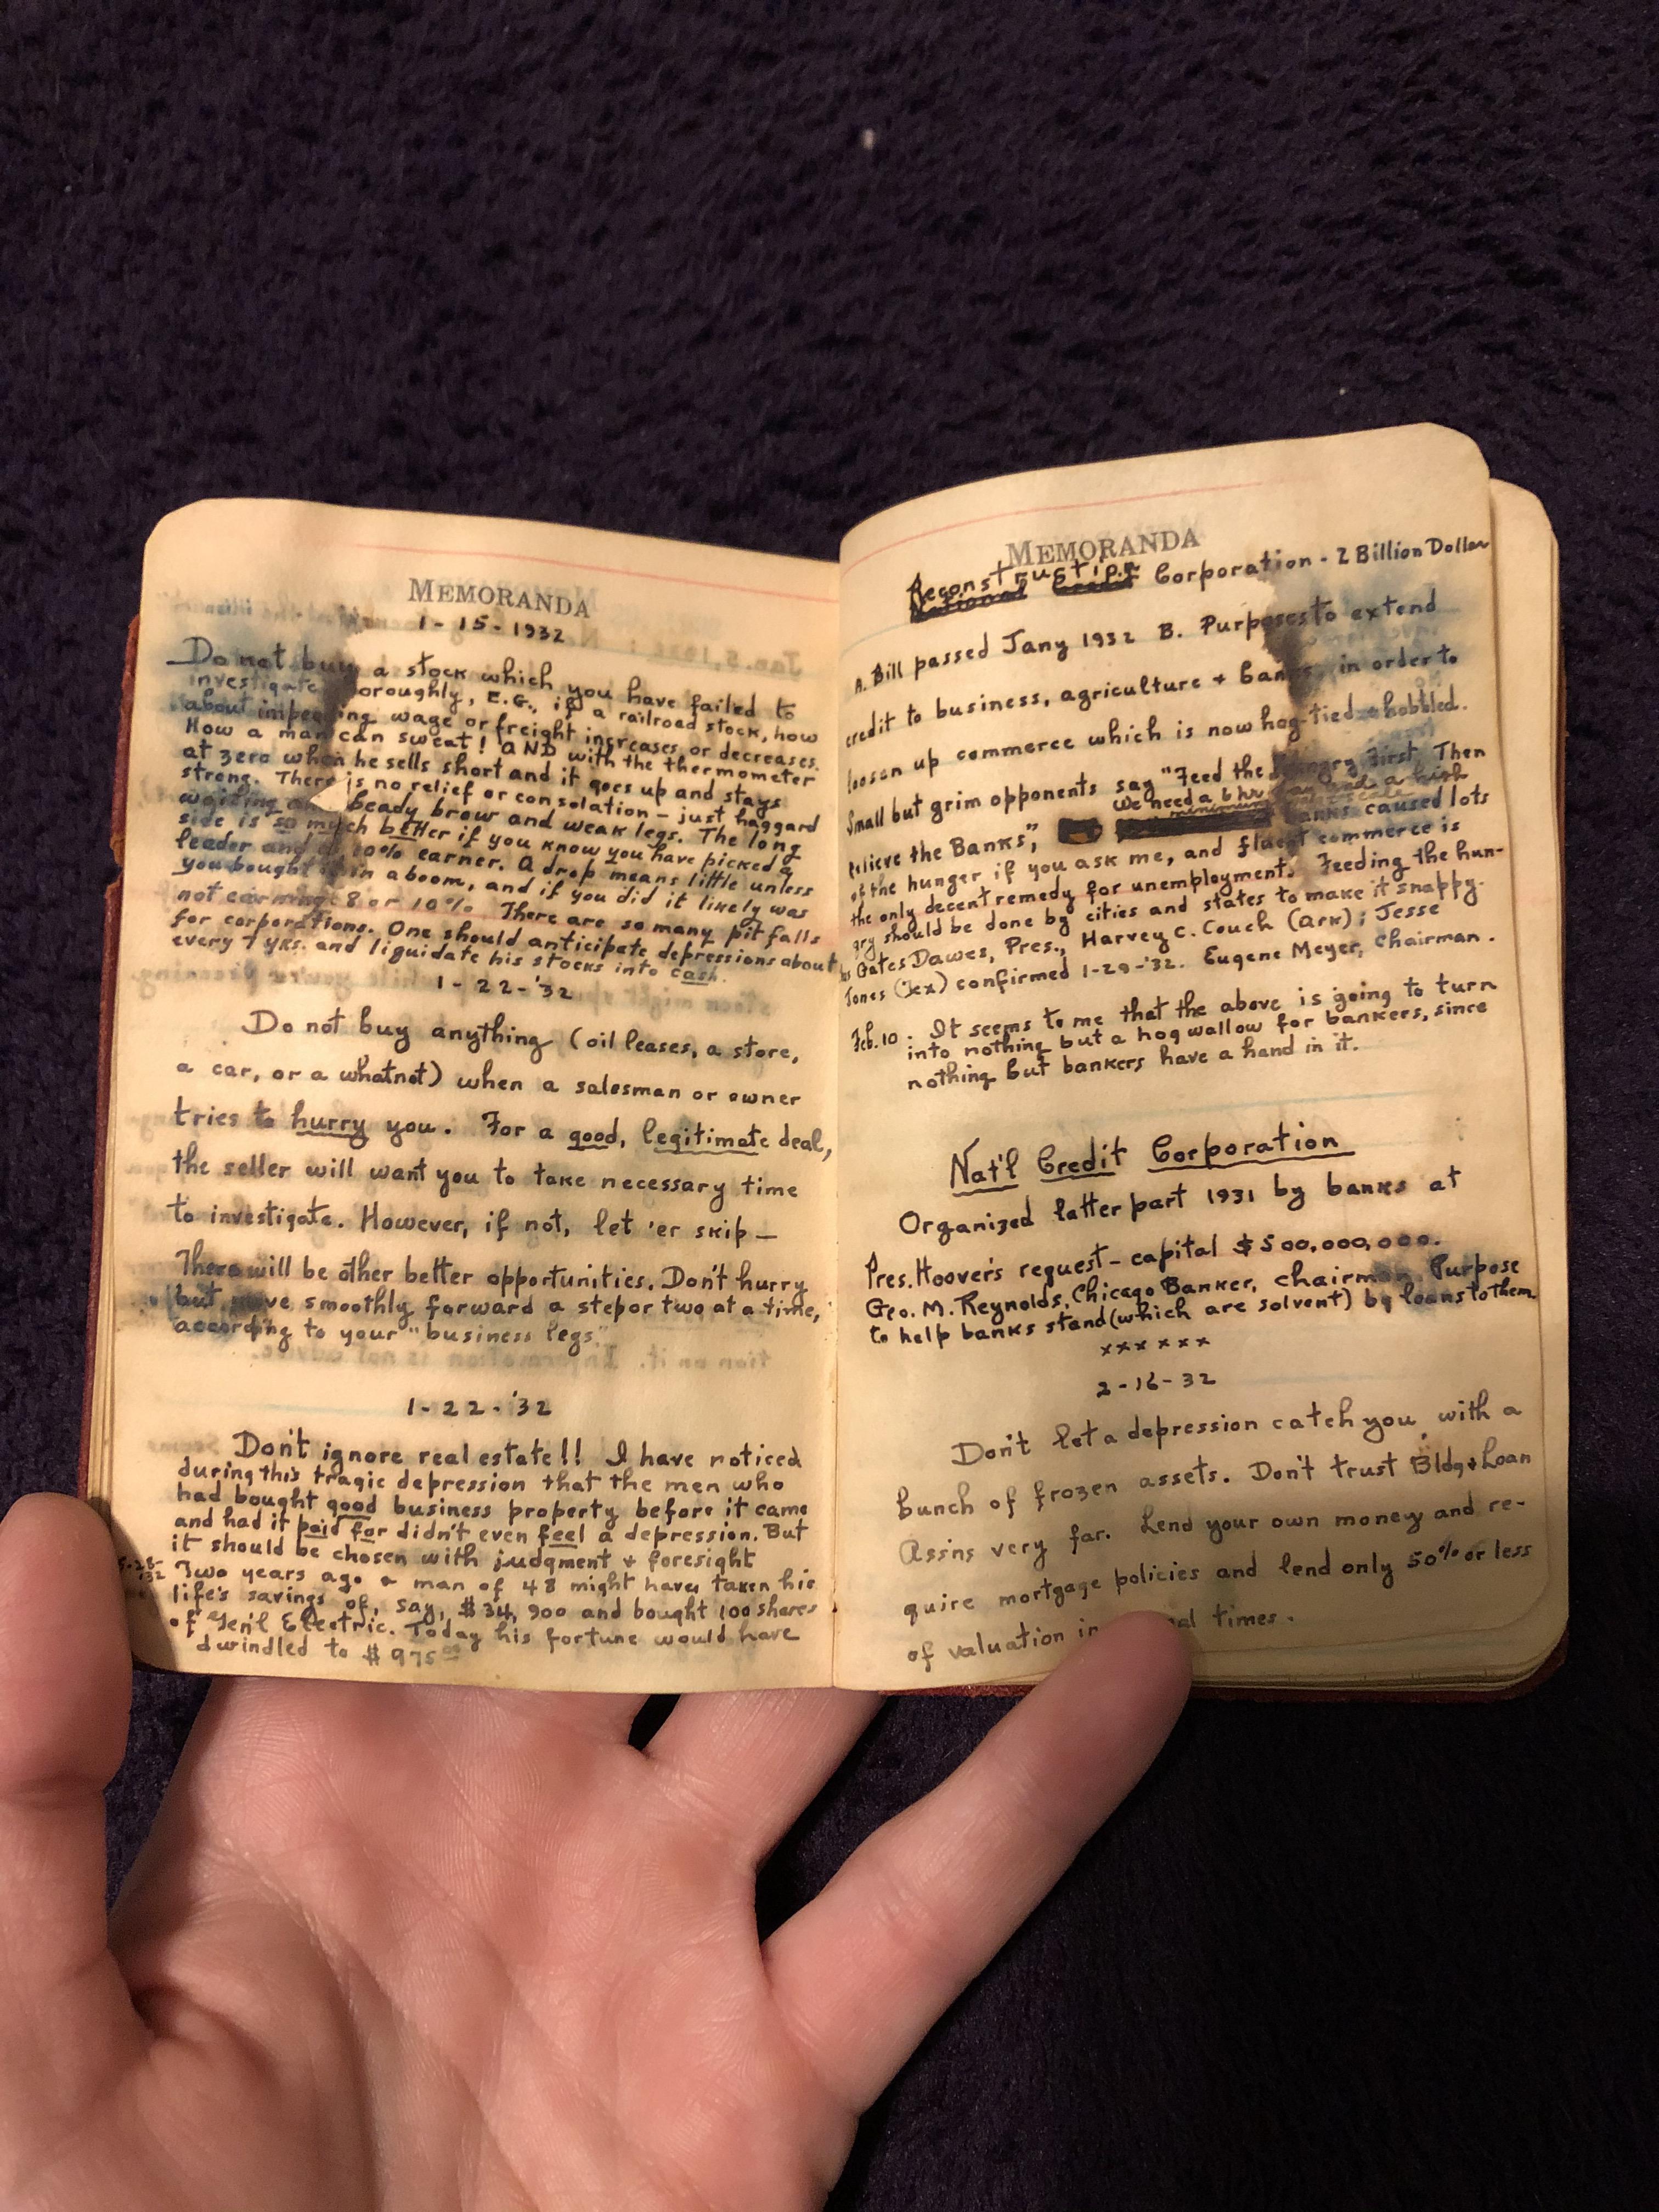 MEMORANDA
1-15-1932
Do not buy a stock which you have failed to
investigate thoroughly, E.G., if a railroad stock, how
about impending wage or freight increases or decreases.
How a man can sweat! AND with the thermometer
at zero when he sells short and it goes up and stays
strong. There is no relief or consolation - just haggard
waiting and beady brow and weak legs. The long
side is so much better if you know you have picked a
leader and 10% earner. A drop means little unless
you bought it in a boom, and if you did it likely was
not earning 8 or 10%. There are so many pitfalls
for corporations. One should anticipate depressions about
every 7 yrs. and liquidate his stocks into cash.
1-22-'32
Do not buy anything (oil leases, a store,
a car, or a whatnot) when a salesman or owner
tries to hurry you. For a good, legitimate deal,
the seller will want you to take necessary time
to investigate. However, if not, let 'er skip —
There will be other better opportunities. Don't hurry
but move smoothly forward a step or two at a time,
according to your "business legs."
1-22-'32
Don't ignore real estate!! I have noticed
during this tragic depression that the men who
had bought good business property before it came
and had it paid for didn't even feel a depression. But
it should be chosen with judgment + foresight
Two years ago a man of 48 might have taken his
life's savings of, say, $34,900 and bought 100 shares
of Gen'l Electric. Today his fortune would have
dwindled to $975
MEMORANDA
Reconstruction
National Credit Corporation - 2 Billion Dollar
A. Bill passed Jany 1932 B. Purposes to extend
credit to business, agriculture + banks, in order to
loosen up commerce which is now hog-tied + hobbled.
Small but grim opponents say "Feed the Hungry First. Then
relieve the Banks",
We need a 6 hr and a high
minimum
Banks caused lots
of the hunger if you ask me, and fluent commerce is
the only decent remedy for unemployment. Feeding the hun-
gry should be done by cities and states to make it snappy.
Gates Dawes, Pres., Harvey C. Couch (Ark); Jesse
Jones (Tex) confirmed 1-29-'32. Eugene Meyer, Chairman.
Feb. 10: It seems to me that the above is going to turn
into nothing but a hog wallow for bankers, since
nothing but bankers have a hand in it.
Nat'l Credit Corporation
Organized latter part 1931 by banks at
Pres. Hoover's request - capital $500,000,000.
Geo. M. Reynolds, Chicago Banker, chairman. Purpose
to help banks stand (which are solvent) by loans to them
xxxxxx
2-16-32
Don't let a depression catch you with a
bunch of frozen assets. Don't trust Bldg + Loan
Assns very far. Lend your own money and re-
quire mortgage policies and lend only 50% or less
of valuation in times.